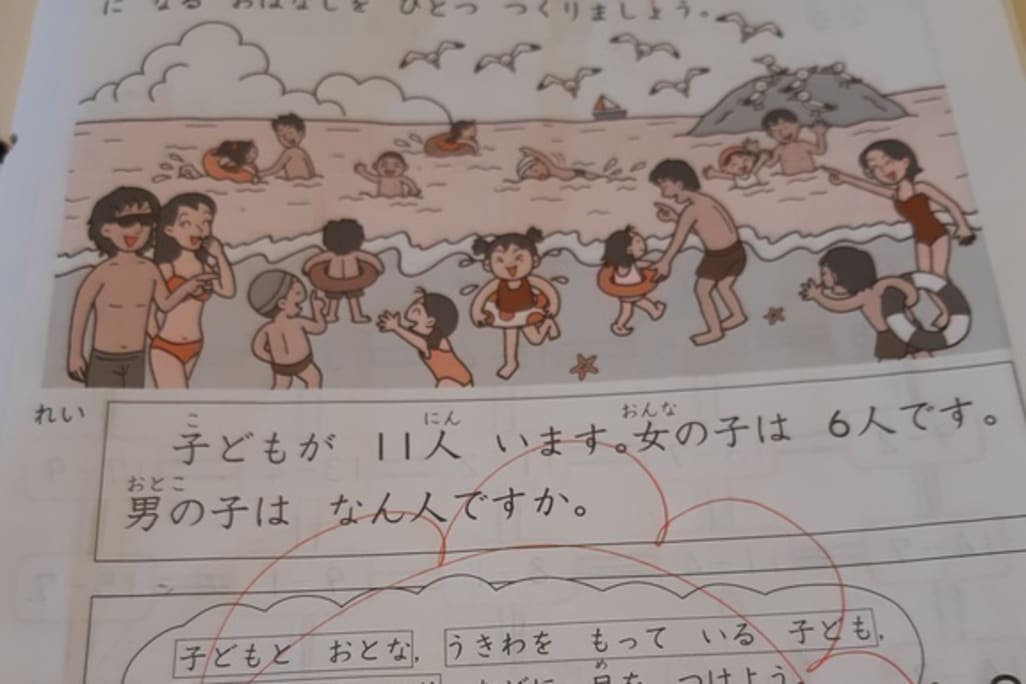 に なる おはなしを ひとつ つくりましょう。
れい
子どもが 11人 います。女の子は 6人です。
男の子は なん人ですか。
子どもと おとな, うきわを もって いる 子ども,
目を つけよう。